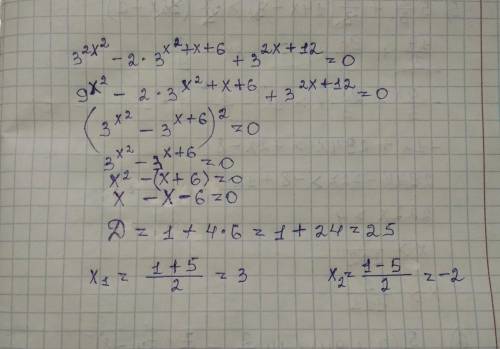 3^{2x^2} - 2 · 3^{x^2+x+6} + 3^{2x+12} = 0
9^{x^2} - 2 · 3^{x^2+x+6} + 3^{2x+12} = 0
(3^{x^2} - 3^{x+6})^2 = 0
3^{x^2} - 3^{x+6} = 0
x^2 - (x+6) = 0
x - x - 6 = 0
D = 1 + 4·6 = 1 + 24 = 25
x_1 = \frac{1+5}{2} = 3 x_2 = \frac{1-5}{2} = -2